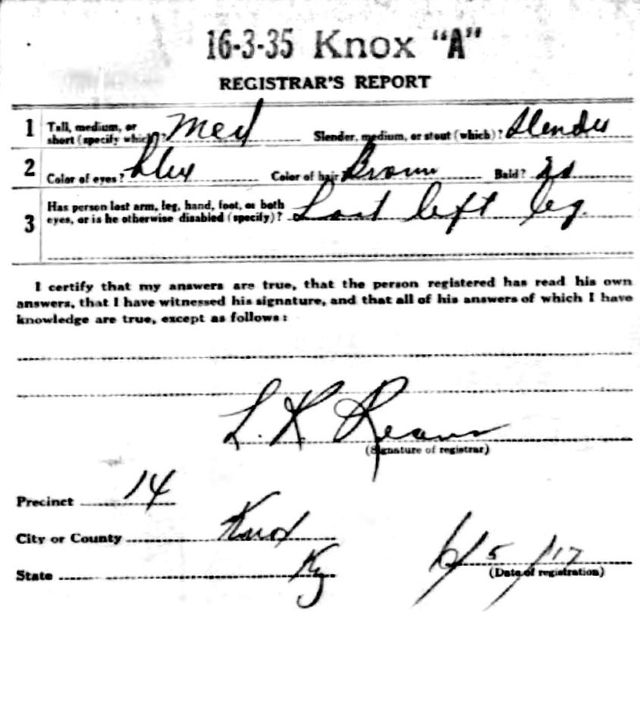 16-3-35 Knox "A"
REGISTRAR'S REPORT
1 Tall, medium, or short (specify which)? Med Slender, medium, or stout (which)? Slender
2 Color of eyes? Blue Color of hair? Brown Bald?
3 Has person lost arm, leg, hand, foot, or both
eyes, or is he otherwise disabled (specify)? Lost left leg.
I certify that my answers are true, that the person registered has read his own
answers, that I have witnessed his signature, and that all of his answers of which I have
knowledge are true, except as follows:
L. K.
(Signature of registrar)
Precinct 14
City or County Knox
State Ky 6/5/17
(Date of registration)